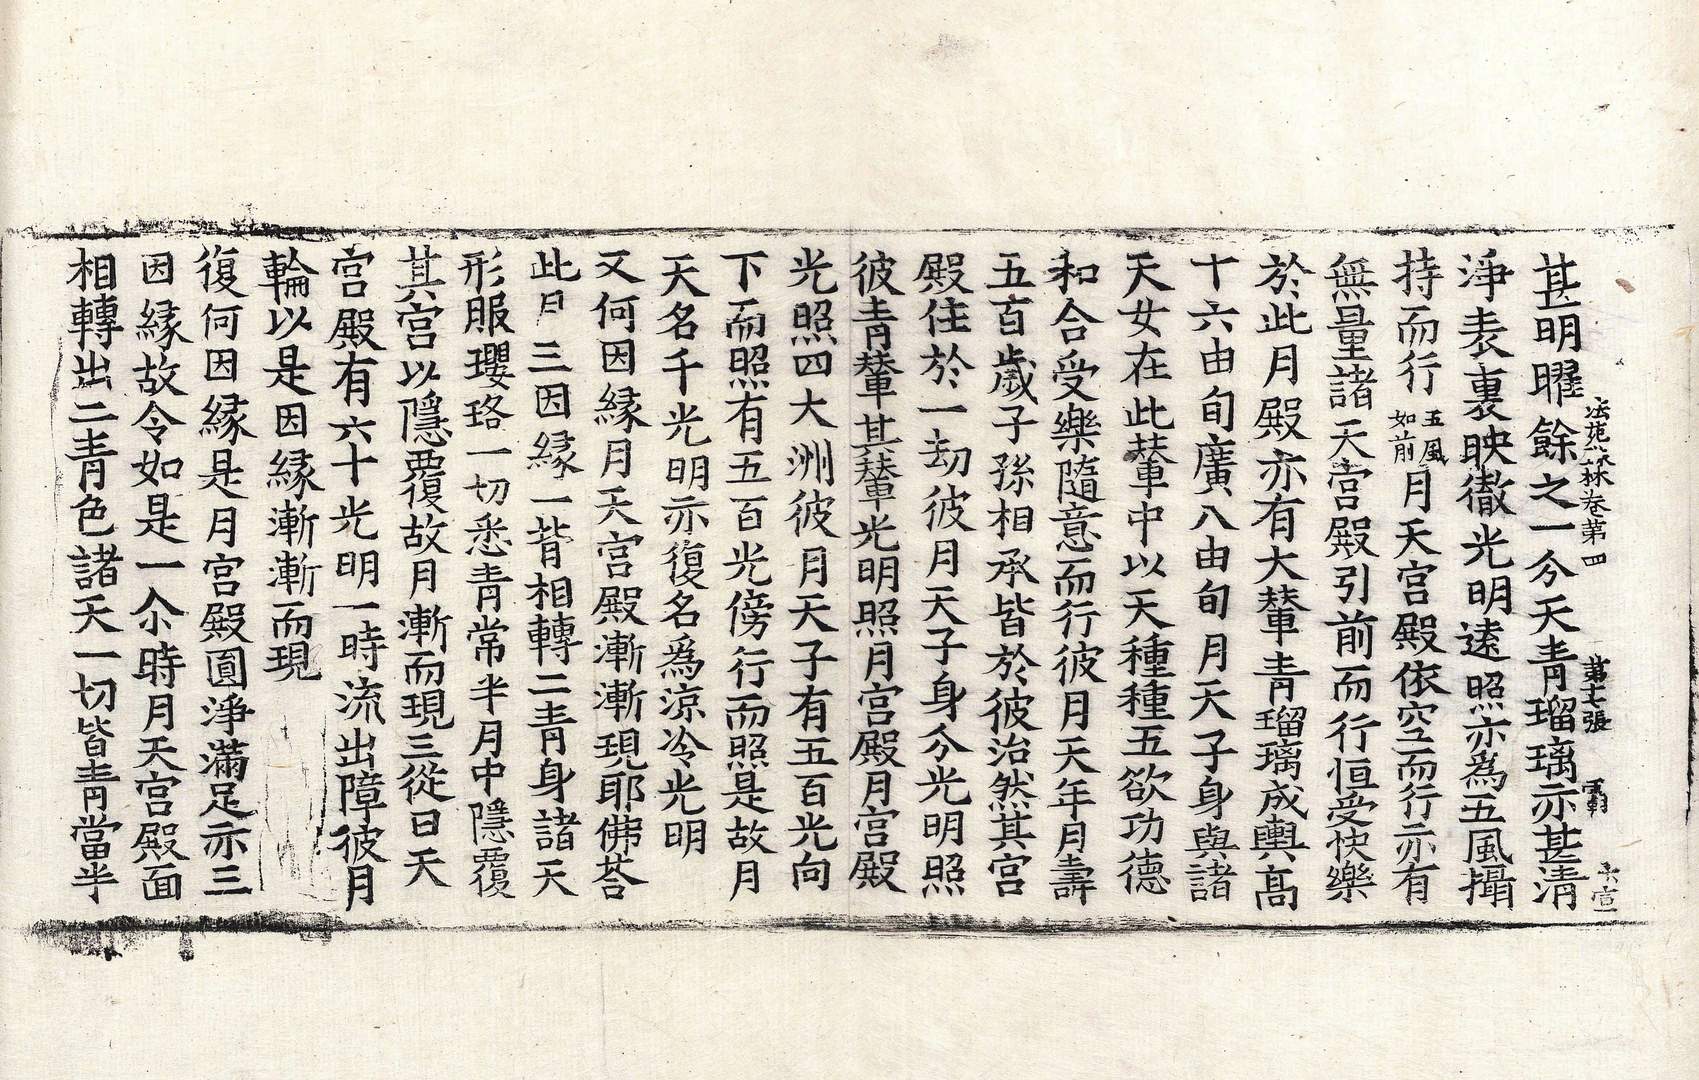 法苑珠林卷第四 第七張 覇
甚明曜餘之一分天青瑠璃亦甚清
淨表裏映徹光明遠照亦為五風攝
持而行五風如前月天宮殿依空而行亦有
無量諸天宮殿引前而行恒受快樂
於此月殿亦有大輦青瑠璃成輿髙
十六由旬廣八由旬月天子身與諸
天女在此輦中以天種種五欲功德
和合受樂隨意而行彼月天年月壽
五百歲子孫相承皆於彼治然其宮
殿住於一劫彼月天子身分光明照
彼青輦其輦光明照月宮殿月宮殿
光照四大洲彼月天子有五百光向
下而照有五百光傍行而照是故月
天名千光明亦復名為涼冷光明
又何因緣月天宮殿漸漸現耶佛荅
此月三因緣一背相轉二青身諸天
形服瓔珞一切悉青常半月中隱覆
其宮以隱覆故月漸而現三從日天
宮殿有六十光明一時流出障彼月
輪以是因緣漸漸而現
復何因緣是月宮殿圎淨滿足亦三
因緣故令如是一尒時月天宮殿面
相轉出二青色諸天一切皆青當半